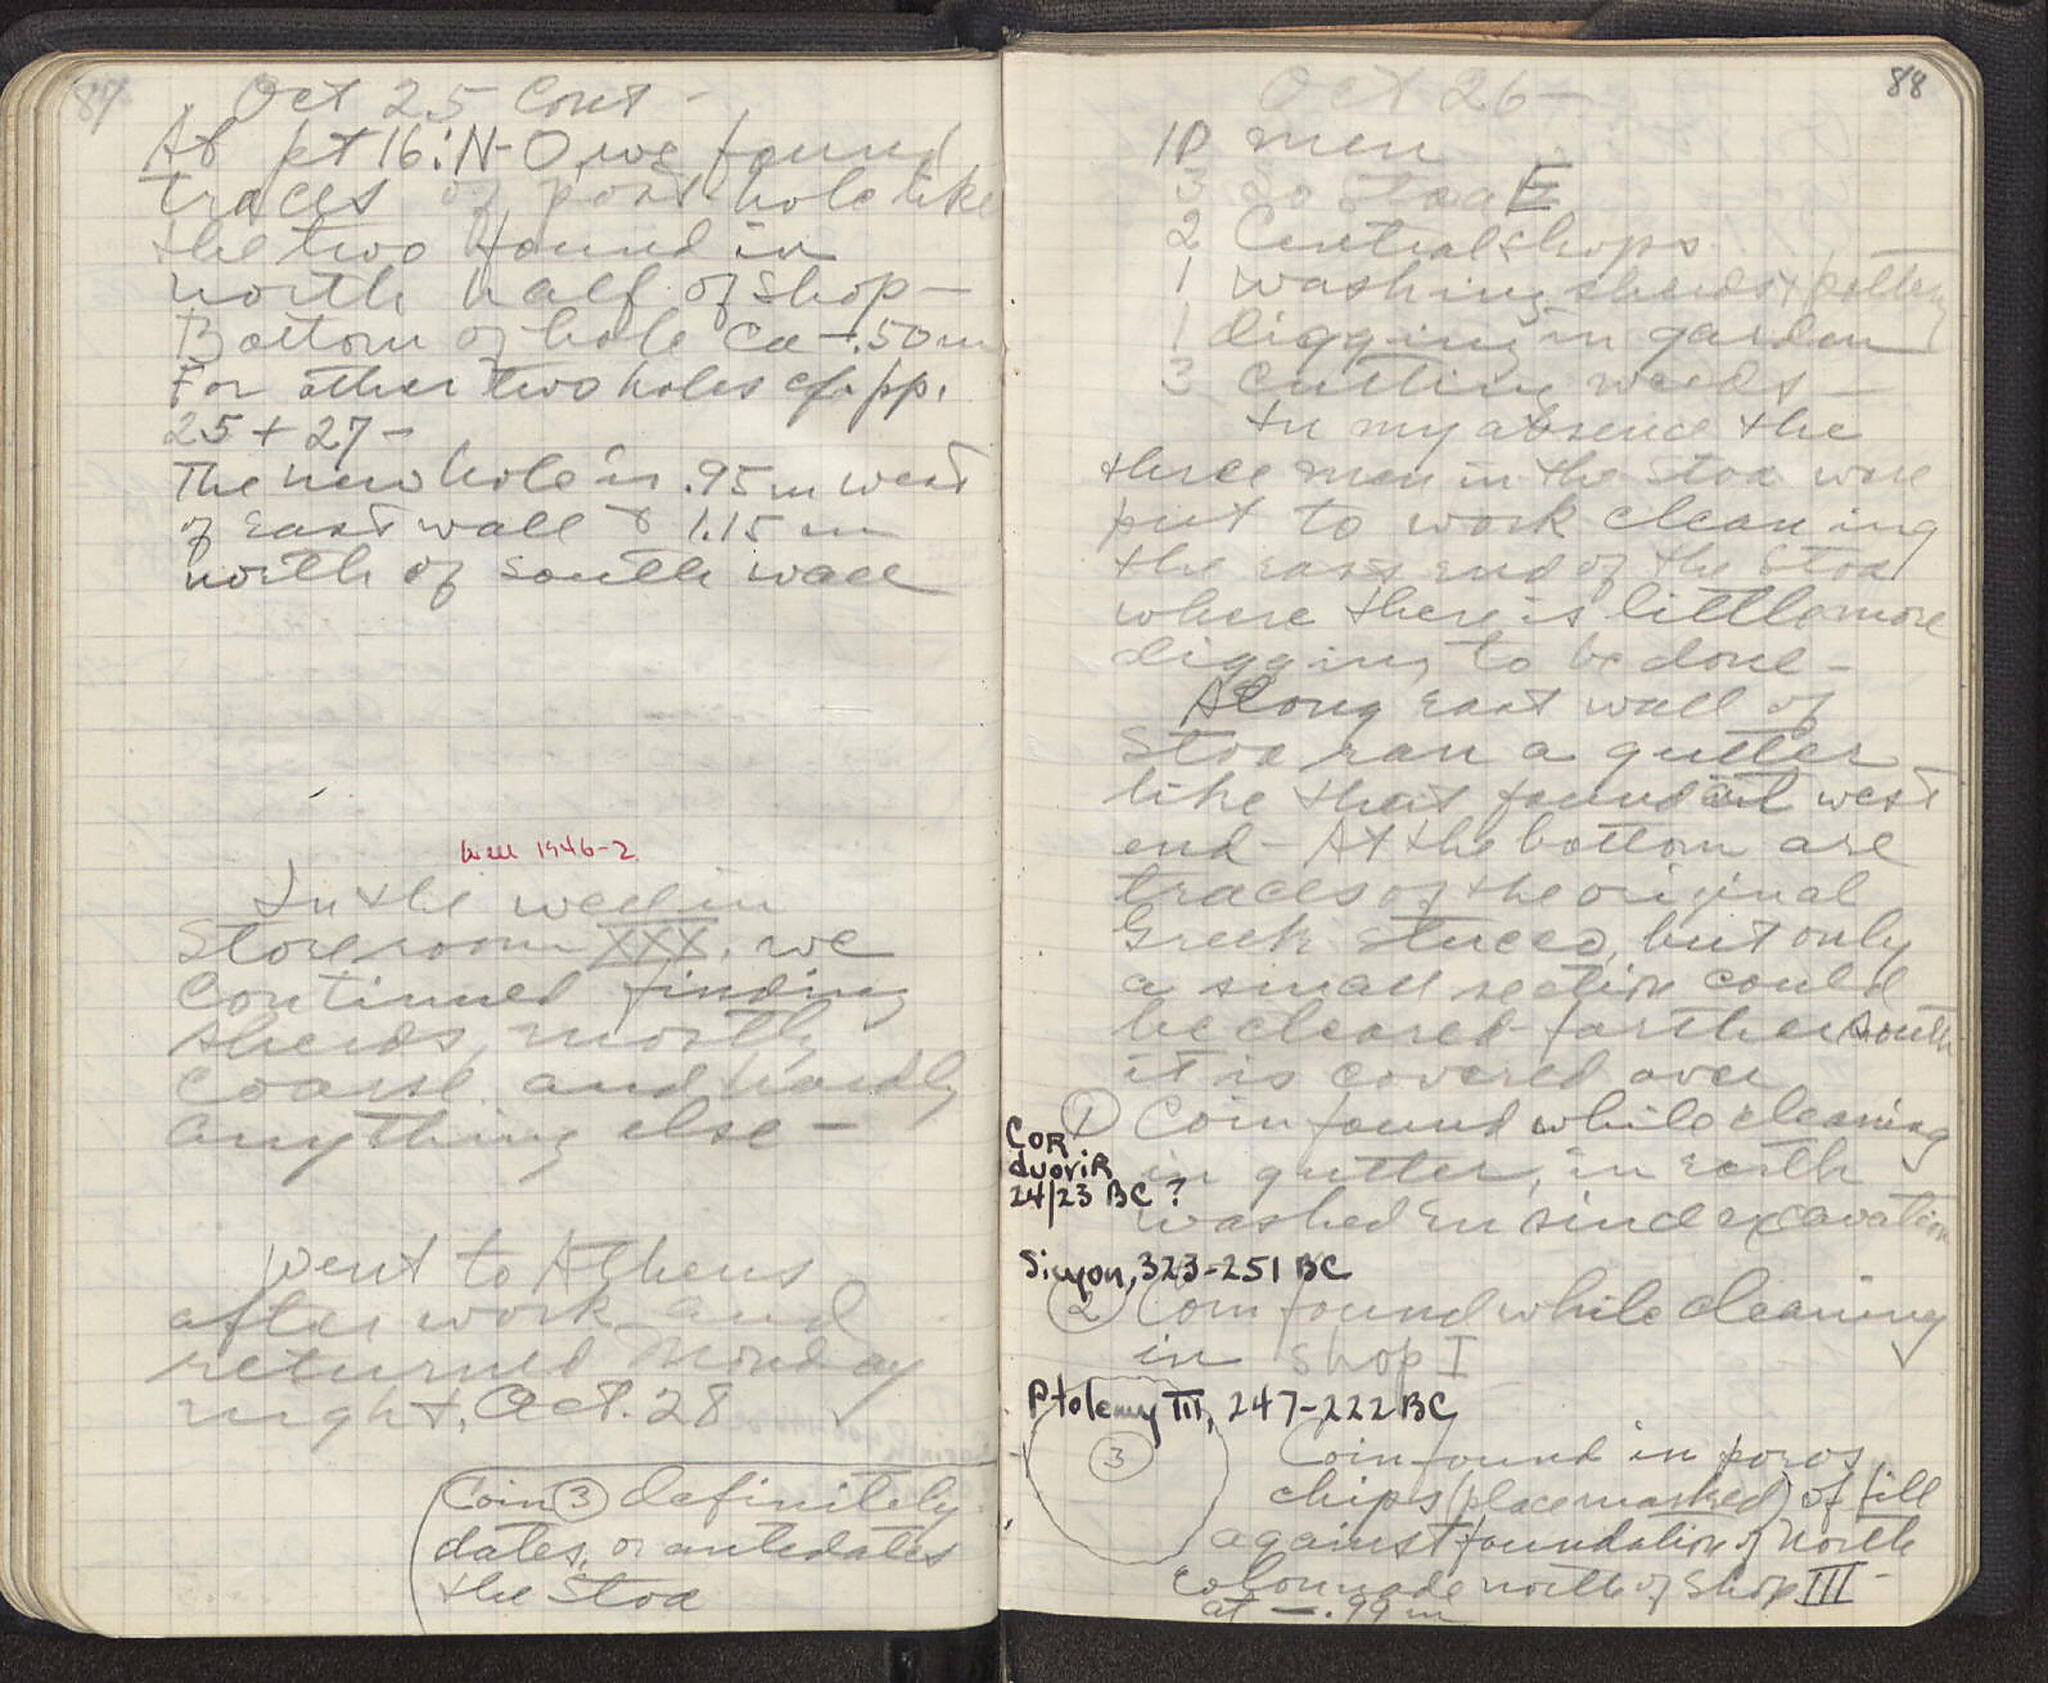 87
Oct 25 Cont -
At pt 16: N-O, we found
traces of post hole like
the two found in
north half of shop -
Bottom of hole ca -.50 m
For other two holes cf. pp.
25 + 27 -
The new hole is .95 m west
of east wall & 1.15 m
north of south wall
Well 1946-2
In the well in
Storeroom XXX, we
continued finding
sherds, mostly
coarse and hardly
anything else -
Went to Athens
after work and
returned Monday
night, Oct. 28
Coin 3 definitely
dates, or antedates
the Stoa
88
Oct 26 -
10 men
3 So Stoa E
2 Central shops
1 washing sherds + pottery
1 digging in garden
3 cutting weeds -
In my absence the
three men in the Stoa were
put to work cleaning
the east end of the Stoa
where there is little more
digging to be done -
Along east wall of
Stoa ran a gutter
like that found at west
end - At the bottom are
traces of the original
Greek stucco, but only
a small section could
be cleared - farther south
it is covered over
1 Coin found while cleaning
in gutter, in earth
washed in since excavation
COR
duoviR
24/23 BC ?
Sicyon, 323-251 BC
2 Coin found while cleaning
in shop I
Ptolemy III, 247-222 BC
3 Coin found in poros
chips (place marked) of fill
against foundation of North
colonnade north of Shop III -
at -.99 m